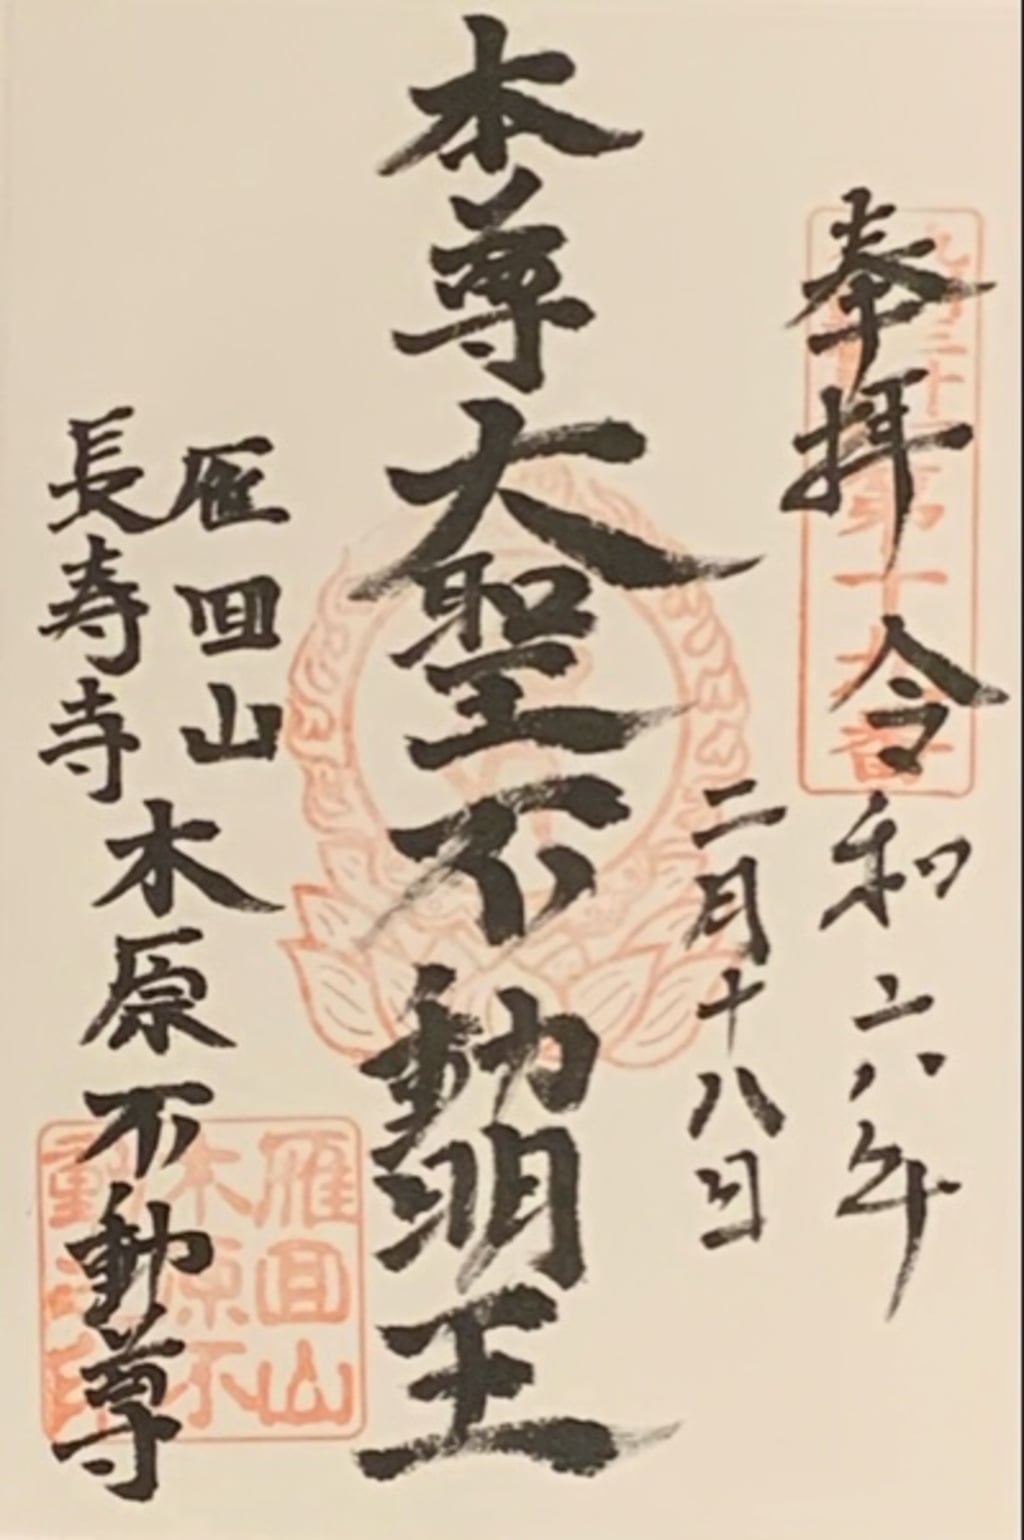 奉拝
令和六年
二月十八日
第十九番
本尊大聖不動明王
雁回山
長寿寺
木原不動尊
雁回山
木原不